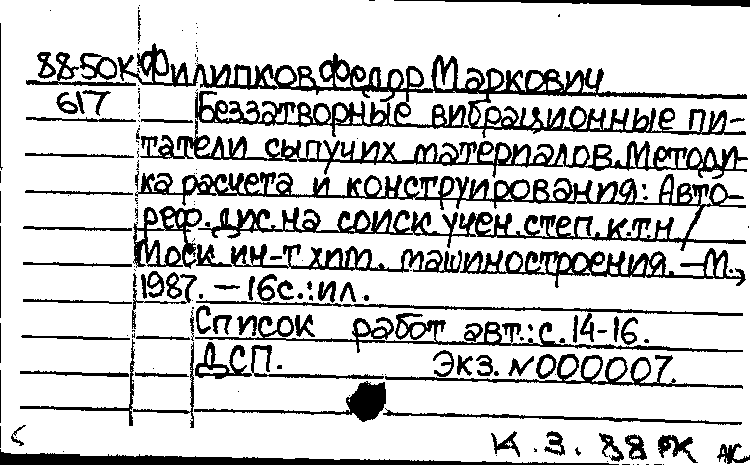 88-50К Филипков Федор Маркович
617 Беззатворные вибрационные пи-
татели сыпучих материалов. Методи-
ка расчета и конструирования: Авто-
реф. дис. на соиск. учен. степ. к.т.н /
Моск. ин-т хим. машиностроения. — М.,
1987. — 16с.: ил.
Список работ авт.: с. 14-16.
ДСП. Экз. №000007.
К.З. 88 РК